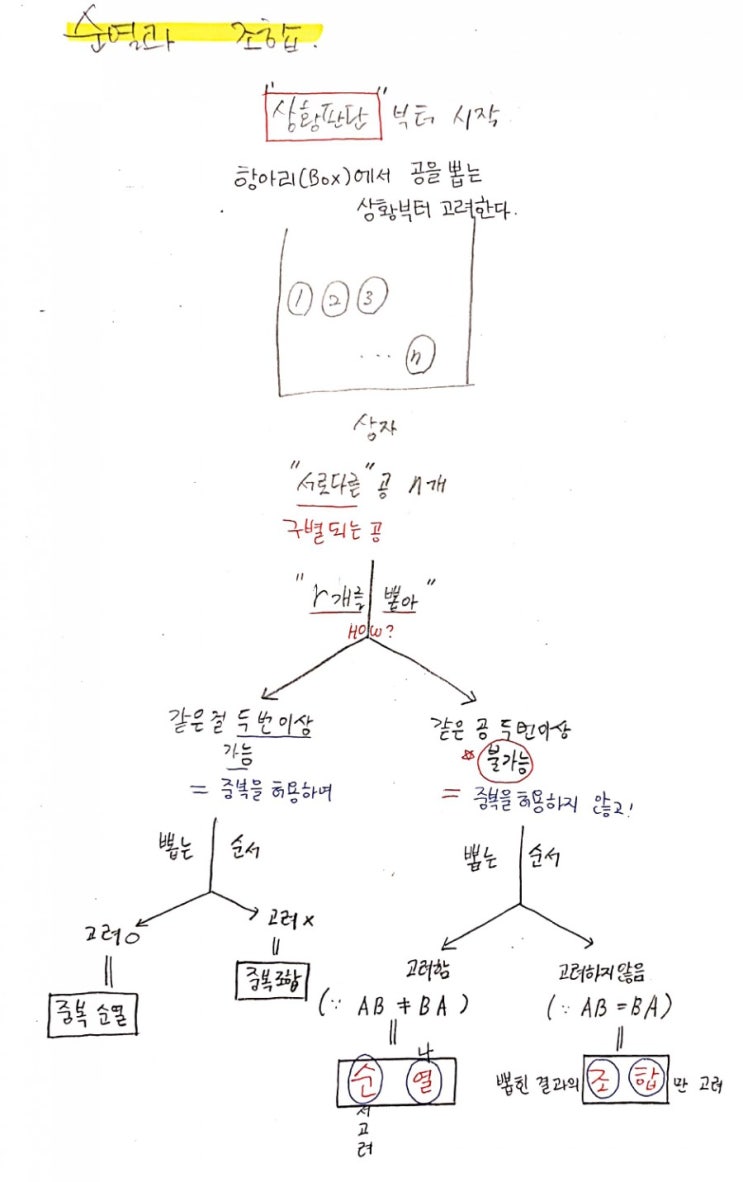 순열과 조합.
"상황판단" 부터 시작
항아리(Box)에서 공을 뽑는
상황부터 고려한다.
1 2 3
... n
상자
"서로다른" 공 n개
구별되는 공
"r개를 뽑아"
HOW?
같은걸 두번이상
가능
= 중복을 허용하며
같은 공 두번이상
불가능
= 중복을 허용하지 않고!
뽑는 순서
뽑는 순서
고려O
고려X
=
=
중복 순열
중복조합
고려함
고려하지않음
(∵ AB ≠ BA)
(∵ AB = BA)
=
=
나
순 열
서
고
려
뽑힌 결과의 조 합 만 고려